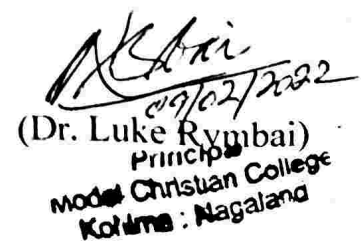 09/02/2022
(Dr. Luke Rymbai)
Principal
Model Christian College
Kohima : Nagaland